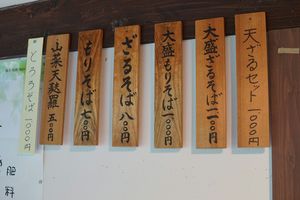 天ざるセット 一〇〇〇円
大盛ざるそば 一一〇〇円
大盛もりそば 一〇〇〇円
ざるそば 八〇〇円
もりそば 七〇〇円
山菜天麩羅 五〇〇円
とろろそば 一〇〇〇円
肥料